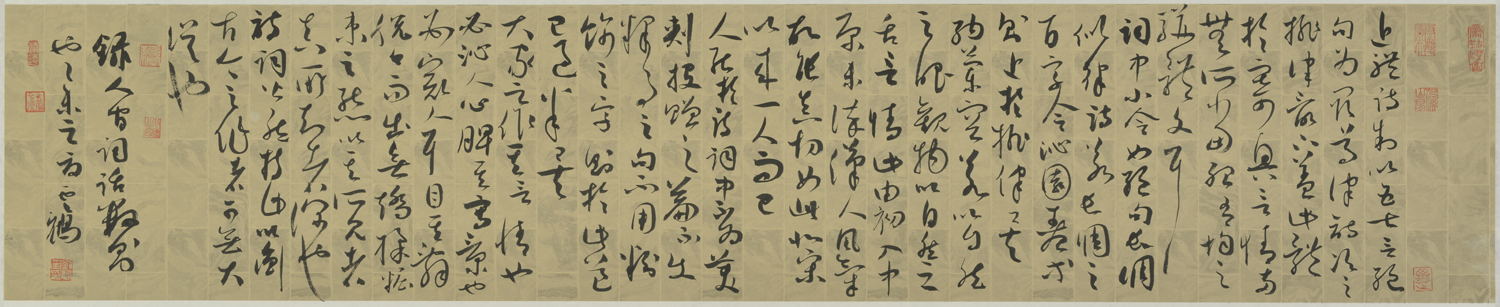 近體詩制以五七言絕
句為最尊律詩次之
排律最下蓋此體
於寄興言情兩
無所當殆有韻之
駢體文耳
詞中小令如絕句長調
似律詩若長調之
百字令沁園春等
則近於排律矣
納蘭容若以自然
之眼觀物以自然之
舌言情此由初入中
原未染漢人風氣
故能真切如此北宋
以來一人而已
人能於詩詞中不為美
刺投贈之篇不使
隸事之句不用粉
飾之字則於此道
已過半矣
大家之作其言情也
必沁人心脾其寫景也
必豁人耳目其辭
脫口而出無矯揉妝
束之態以其所見者
真所知者深也
詩詞皆然持此以衡
古今之作者可無大
誤也
錄人間詞話數則